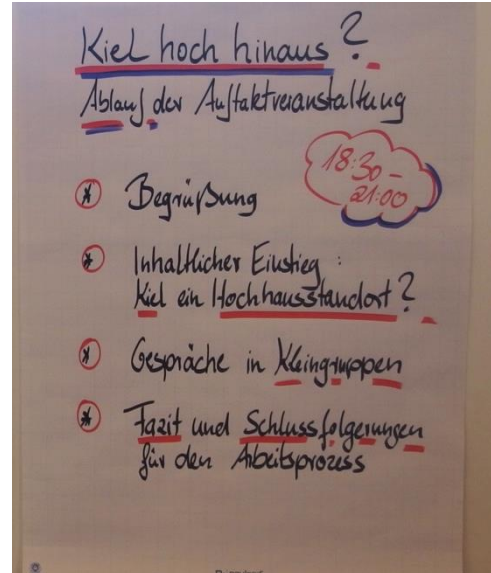 Kiel hoch hinaus?
Ablauf der Auftaktveranstaltung
18:30 –
21:00
* Begrüßung
* Inhaltlicher Einstieg :
Kiel ein Hochhausstandort?
* Gespräche in Kleingruppen
* Fazit und Schlussfolgerungen
für den Arbeitsprozess